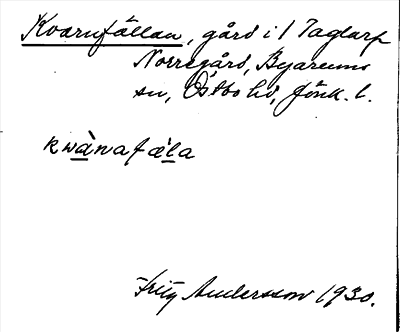 Kvarnfällan, gård i 1 Taglarp
Norregård, Byarums
sn, Östbo hd, Jönk. l.
kwànafæla
Fritz Andersson 1930.